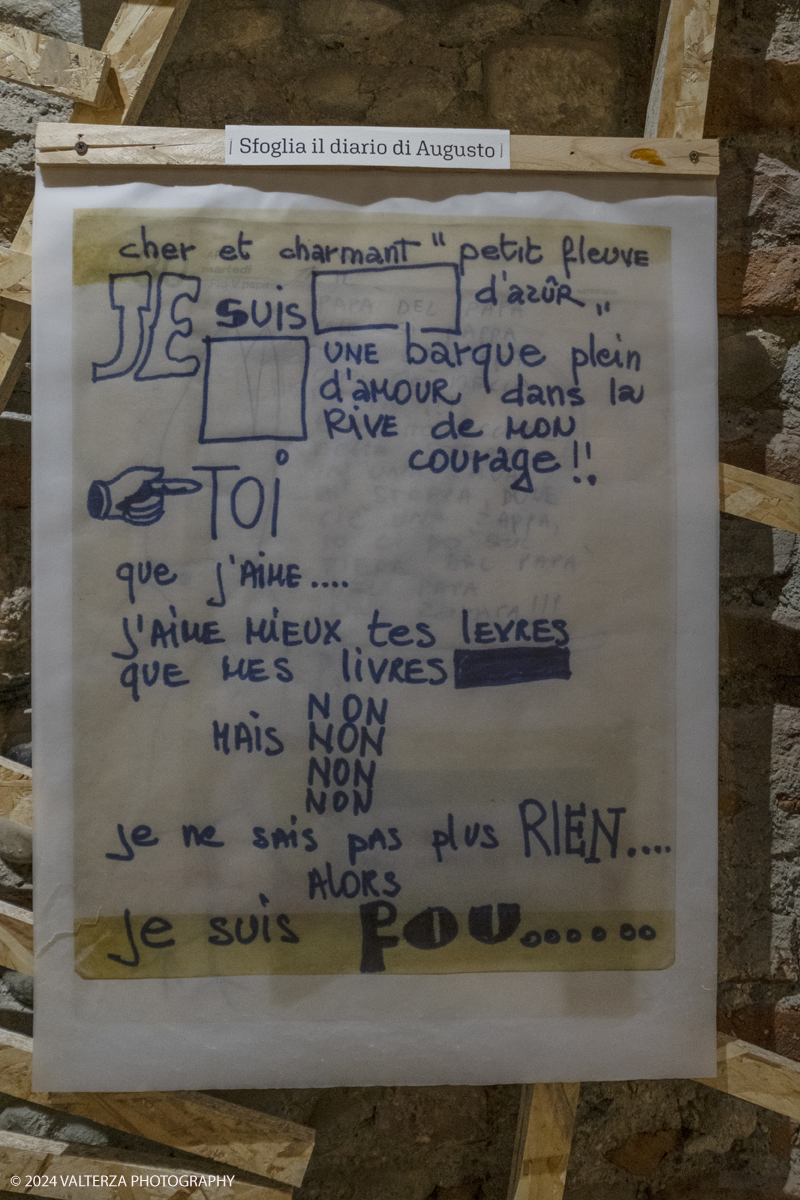 | Sfoglia il diario di Augusto |
cher et charmant " petit fleuve
d'azûr "
JE suis
UNE barque plein
d'AMOUR dans la
RIVE de MON
courage !!
TOI
que j'AIME....
j'AIME MIEUX tes lEVRES
que MES liVRES
NON
MAIS NON
NON
NON
je ne sais pas plus RIEN....
ALORS
je suis FOU.......
martedì
PAPA DEL PAPA
© 2024 VALTERZA PHOTOGRAPHY